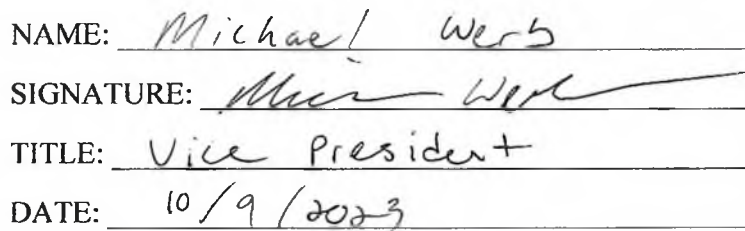 NAME: Michael Werb
SIGNATURE:
TITLE: Vice President
DATE: 10/9/2023